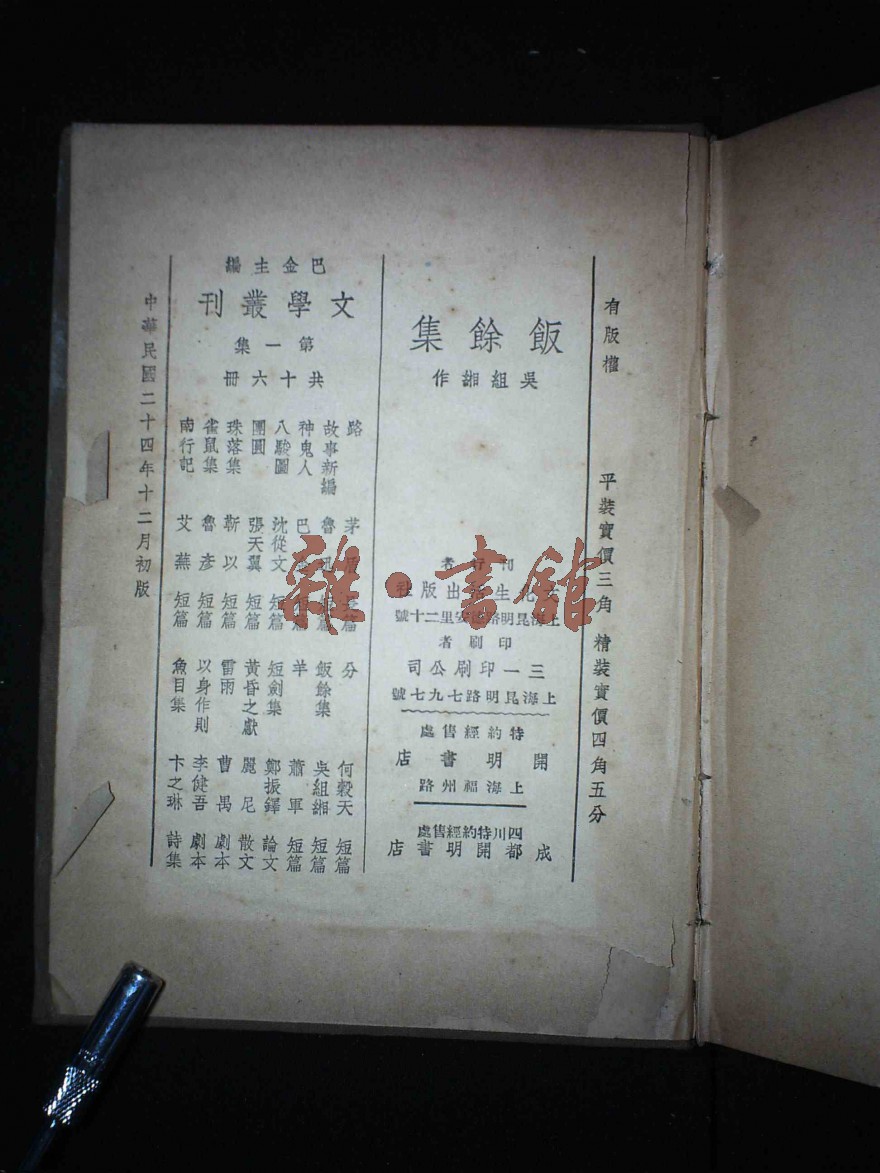 有版權
平裝實價三角 精裝實價四角五分
飯餘集
吳組緗作
刊行者
生 出版社
上海昆明路 安里二十號
印刷者
三一印刷公司
上海昆明路七九七號
特約經售處
開明書店
上海福州路
四川特約經售處
成都開明書店
巴金主編
文學叢刊
第一集
共十六冊
路 茅盾
故事新編 魯迅
神鬼人 巴 短篇
八駿圖 沈從文 短篇
團圓 張天翼 短篇
珠落集 靳以 短篇
雀鼠集 魯彥 短篇
南行記 艾蕪 短篇
分 何穀天 短篇
飯餘集 吳組緗 短篇
羊 蕭軍 短篇
短劍集 鄭振鐸 論文
黃昏之獻 麗尼 散文
雷雨 曹禺 劇本
以身作則 李健吾 劇本
魚目集 卞之琳 詩集
中華民國二十四年十二月初版
雜·書館